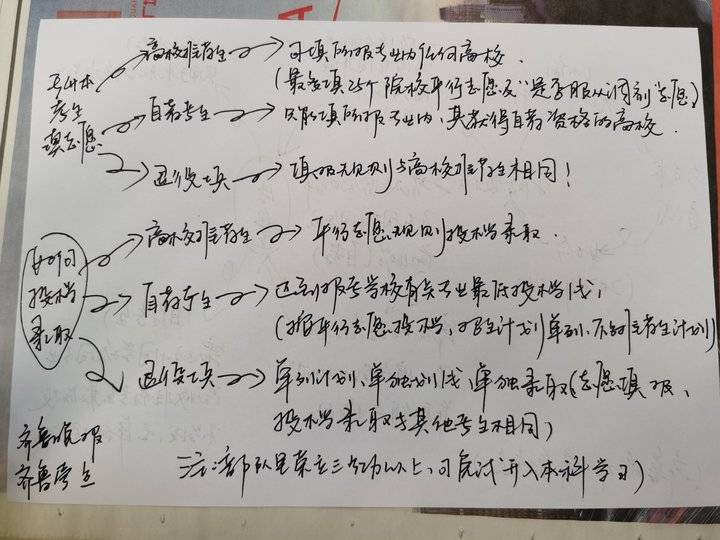 专升本
考生
填志愿
高校推荐生 → 可填所报专业内任何高校.
(最多填25个院校平行志愿及"是否服从调剂"志愿)
自荐考生 → 只能填所报专业内, 其获得自荐资格的高校.
退役填 → 填报规则与高校推荐生相同!
如何
投档
录取
高校推荐生 → 平行志愿规则投档录取.
自荐考生 → 达到报考学校有关专业最低投档线,
(按平行志愿投档, 招生计划单列, 不占推荐生计划)
退役填 → 单列计划、单独划线、单独录取(志愿填报、
投档录取与其他考生相同)
注: 部队里荣立三等功以上, 可免试升入本科学习)
齐鲁晚报
齐鲁考点